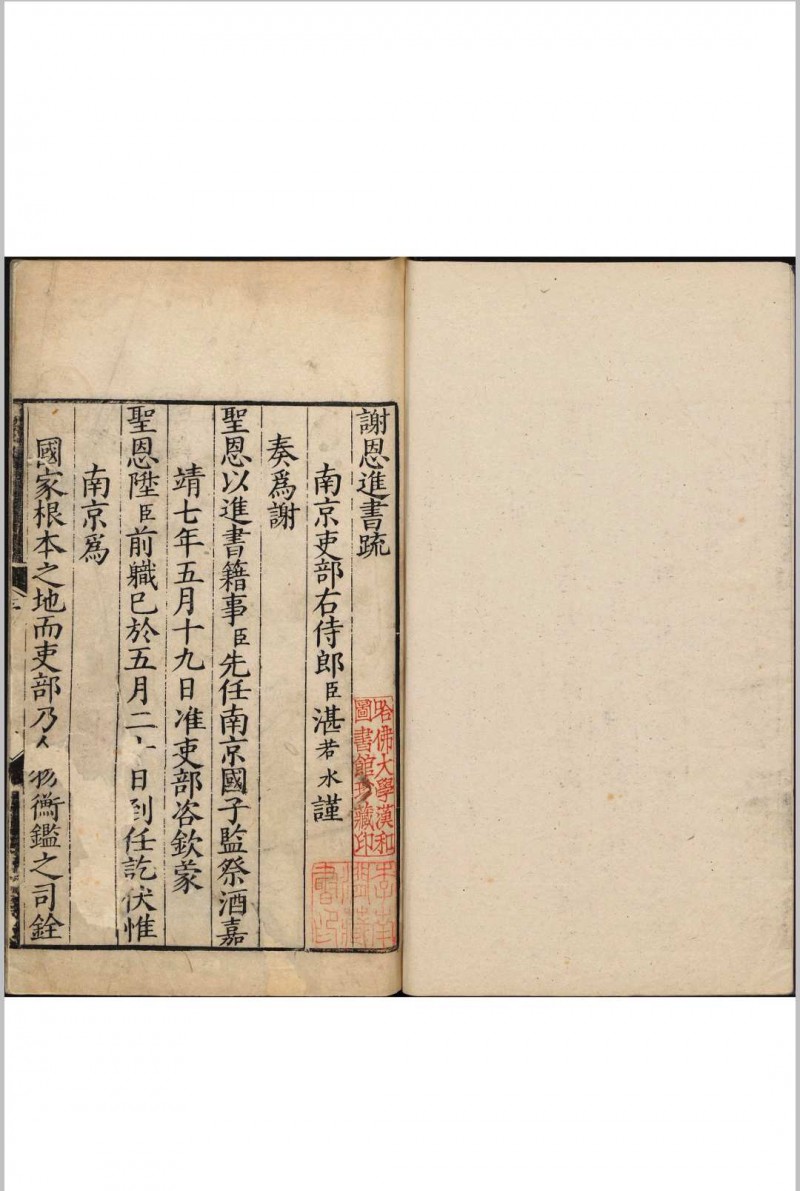 謝恩進書疏
南京吏部右侍郎臣湛若水謹
奏爲謝
聖恩以進書籍事臣先任南京國子監祭酒嘉
靖七年五月十九日准吏部咨欽蒙
聖恩陞臣前職已於五月二十日到任訖伏惟
南京爲
國家根本之地而吏部乃人物衡鑑之司銓
哈佛大學漢和
圖書館珍藏印